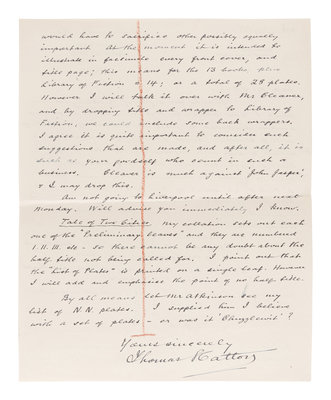 would have to sacrifice other possibly equally
important. At the moment it is intended to
illustrate in facsimile every front cover, and
title page; this means for the 13 books, plus
Library of Fiction = 14; or a total of 28 plates.
However I will talk it over with Mr Cleaver,
and by dropping title and wrapper to Library of
Fiction, we could include some back wrappers.
I agree it is quite important to consider such
suggestions that are made, and after all, it is
such as your goodself who count in such a
business. Cleaver is much against "John Jasper",
& I may drop this.
Am not going to Liverpool until after next
Monday. Will advise you immediately I know.
Tale of Two Cities. My collation sets out each
one of the "Preliminary leaves" and they are numbered
I. II. III. etc. so there cannot be any doubt about the
half-title not being called for. I point out that
the "List of Plates" is printed on a single leaf. However
I will add and emphasise the point of no half-title.
By all means let Mr Atkinson see my
list of N.N. plates. I supplied him I believe
with a set of plates - or was it "Chuzzlewit"?
Yours sincerely
Thomas Hatton